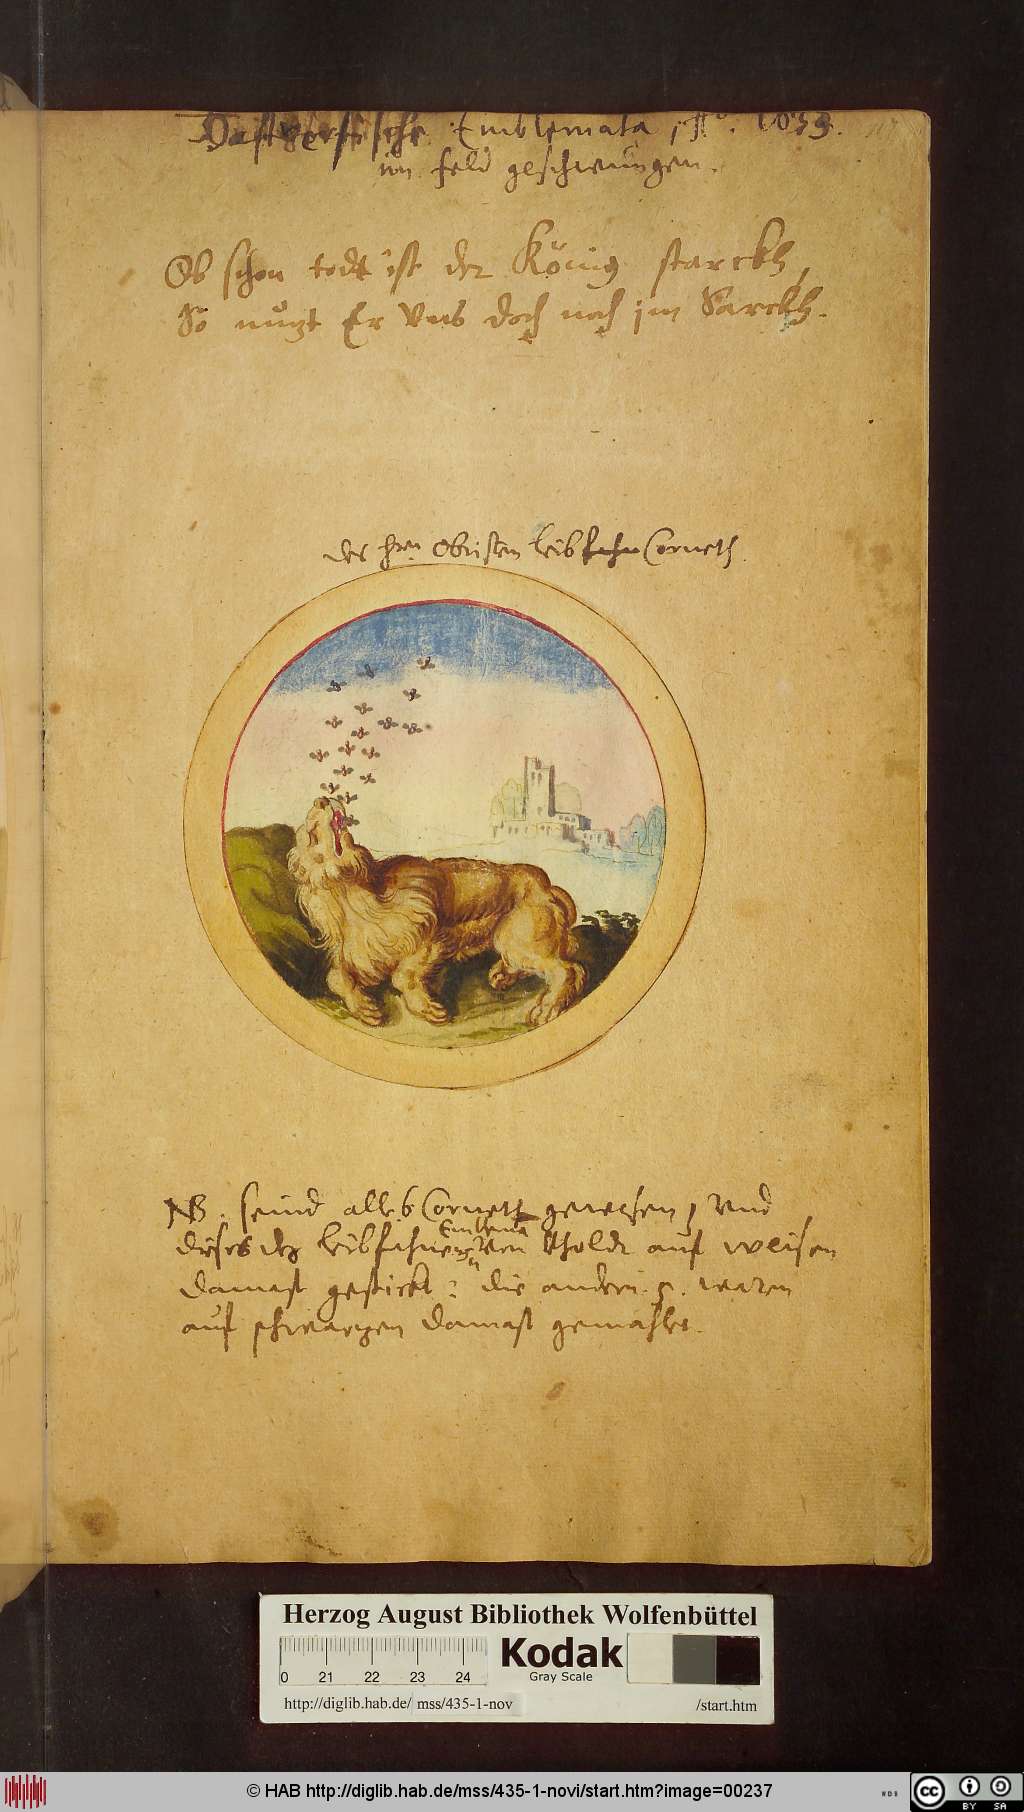 Emblemata
im feld geschwungen.
Ob schon todt ist der König starckh,
So nutzt Er Vns doch noch im Sarckh.
der hrn Obristen leib Corneth
NB. seind alle 6 Cornett gewesen, Vnd
Emblema
dises der leibfahnen Von Gholdt auf weisen
damast gestickt: die andern 5. waren
auf schwartzen damast gemahlt.
Herzog August Bibliothek Wolfenbüttel
0 21 22 23 24
Kodak
Gray Scale
http://diglib.hab.de/ mss/435-1-nov /start.htm
© HAB http://diglib.hab.de/mss/435-1-novi/start.htm?image=00237
cc BY SA